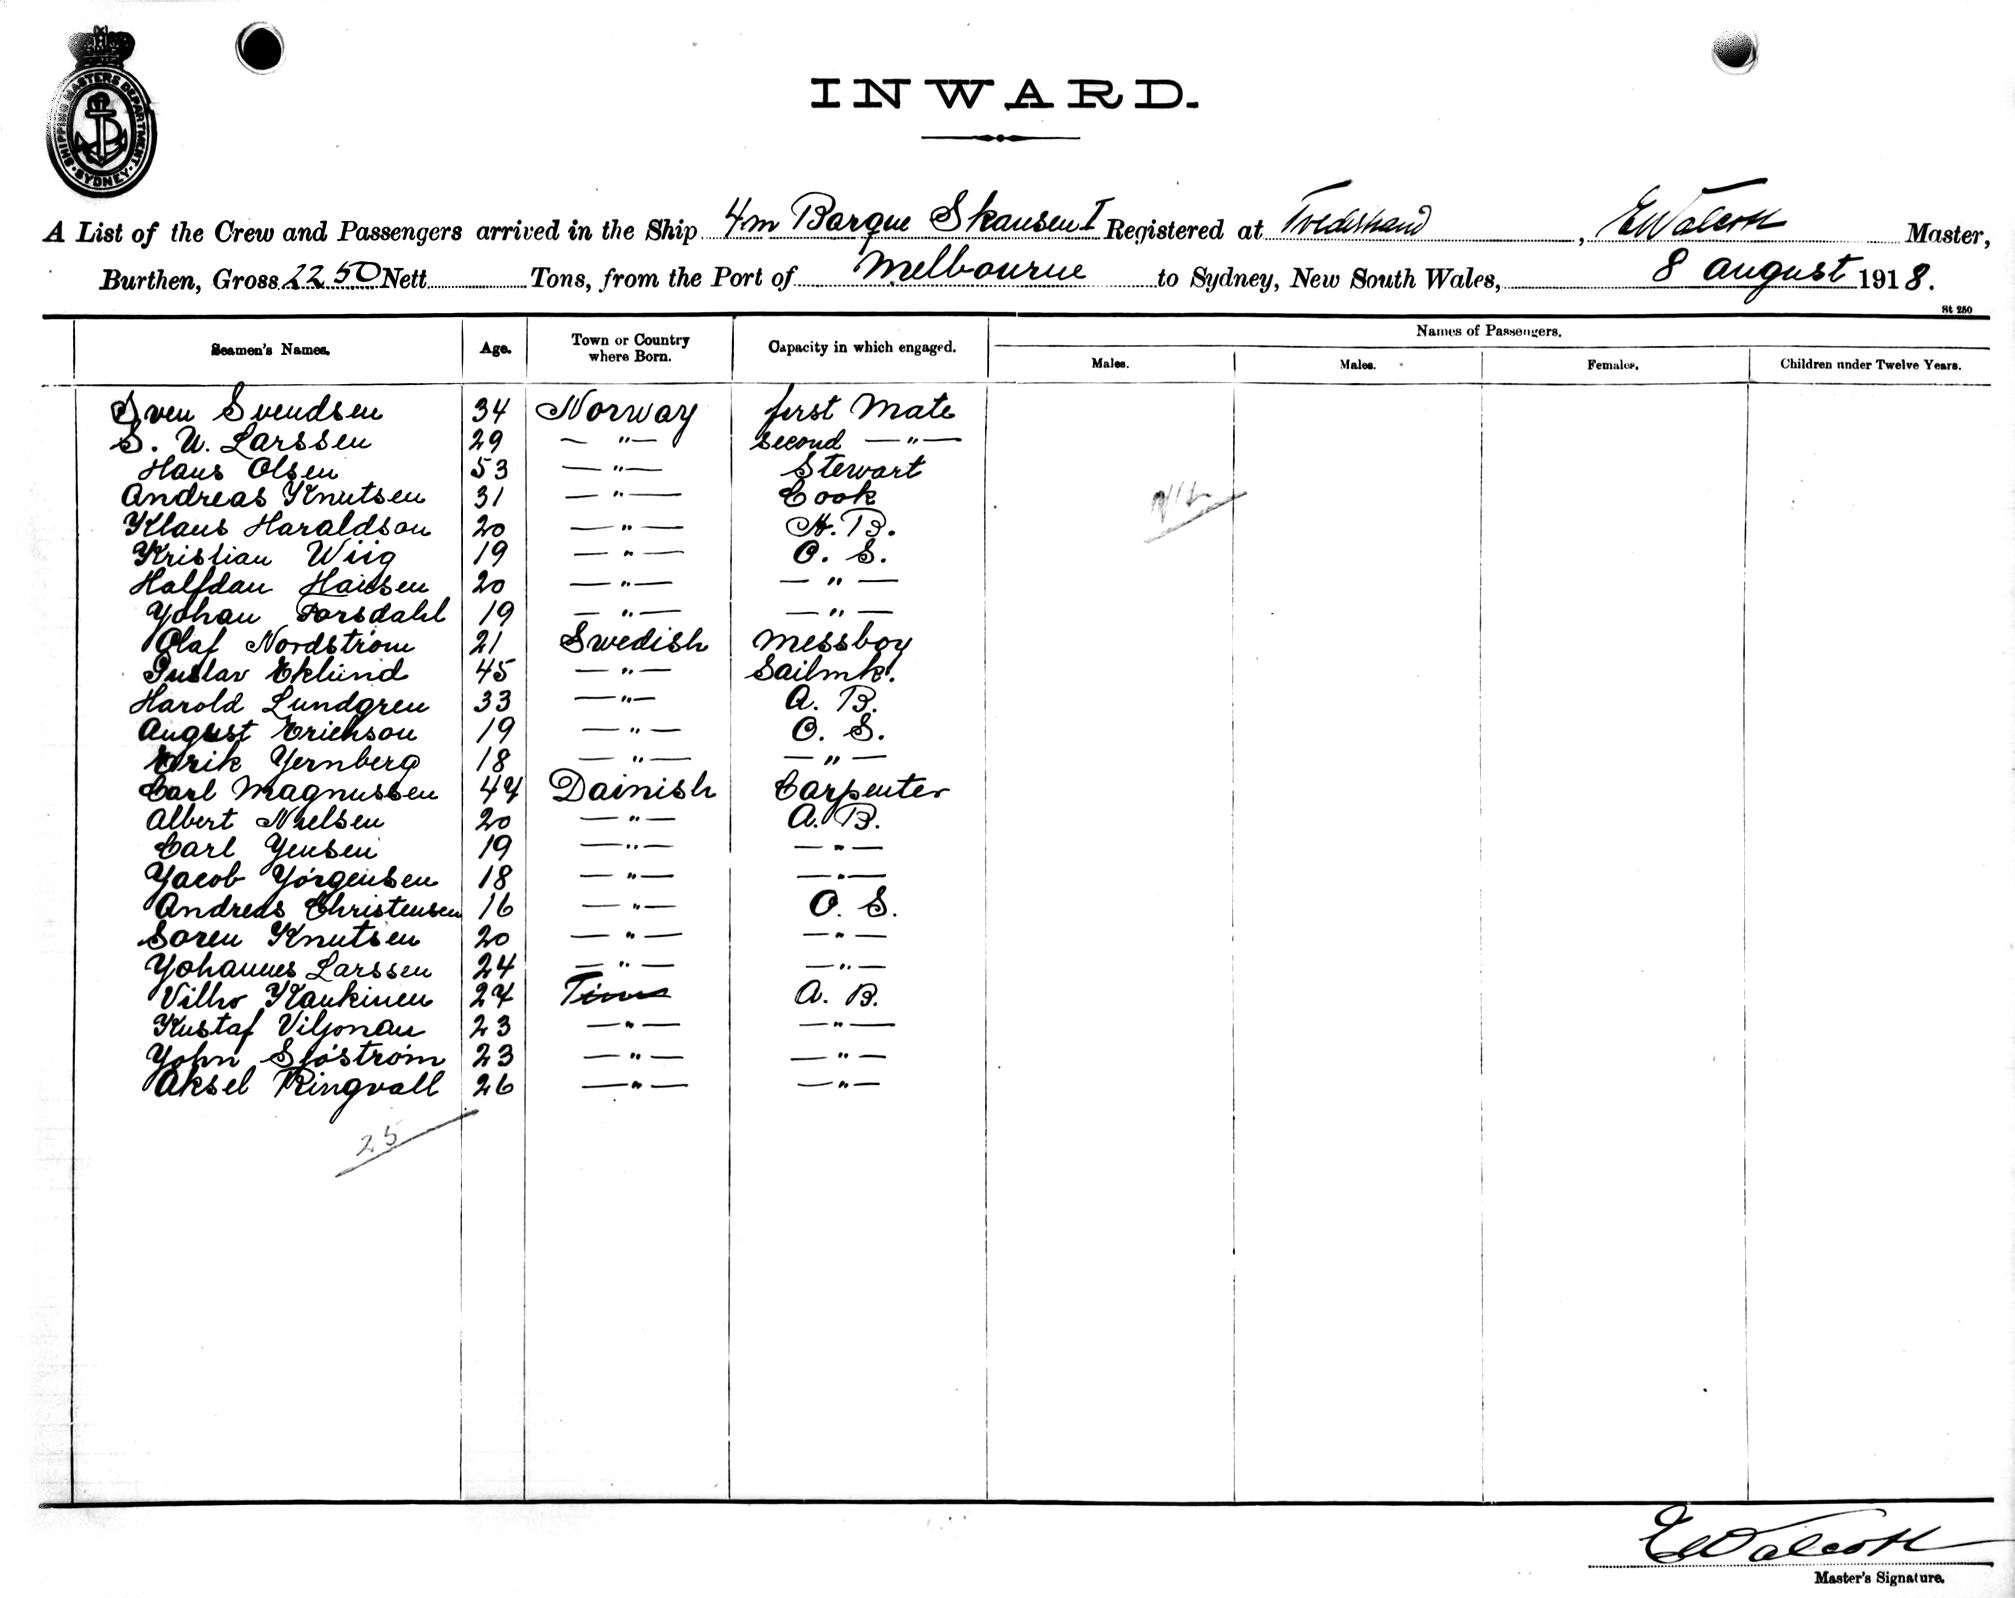 SHIPPING MASTERS DEPARTMENT
SYDNEY
INWARD.
A List of the Crew and Passengers arrived in the Ship 4m Barque Skansen I Registered at Tvedestrand, E Walcott Master,
Burthen, Gross 2250 Nett Tons, from the Port of Melbourne to Sydney, New South Wales, 8 august 1918.
St 250
Seamen's Names. Age. Town or Country where Born. Capacity in which engaged. Names of Passengers.
Males. Males. Females. Children under Twelve Years.
Sven Svendsen 34 Norway first Mate
S. W. Larssen 29 — " — second — " —
Hans Olsen 53 — " — Stewart
Andreas Knutsen 31 — " — Cook
Klaus Haraldson 20 — " — A. B.
Kristian Wiig 19 — " — O. S.
Halfdan Hansen 20 — " — — " —
Yohan Forsdahl 19 — " — — " —
Olaf Nordström 21 Swedish Messboy
Gustav Eklund 45 — " — Sailmk.
Harold Lundgren 33 — " — A. B.
August Erickson 19 — " — O. S.
Erik Yernberg 18 — " — — " —
Carl Magnussen 44 Dainish Carpenter
Albert Nielsen 20 — " — A. B.
Carl Yensen 19 — " — — " —
Yacob Yörgensen 18 — " — — " —
Andreas Christensen 16 — " — O. S.
Soren Knutsen 20 — " — — " —
Yohannes Larssen 24 — " — — " —
Vilho Kaukinen 24 Finns A. B.
Kustaf Viljonau 23 — " — — " —
Yohn Sjöström 23 — " — — " —
Aksel Ringvall 26 — " — — " —
Nil
25
E Walcott
Master's Signature.